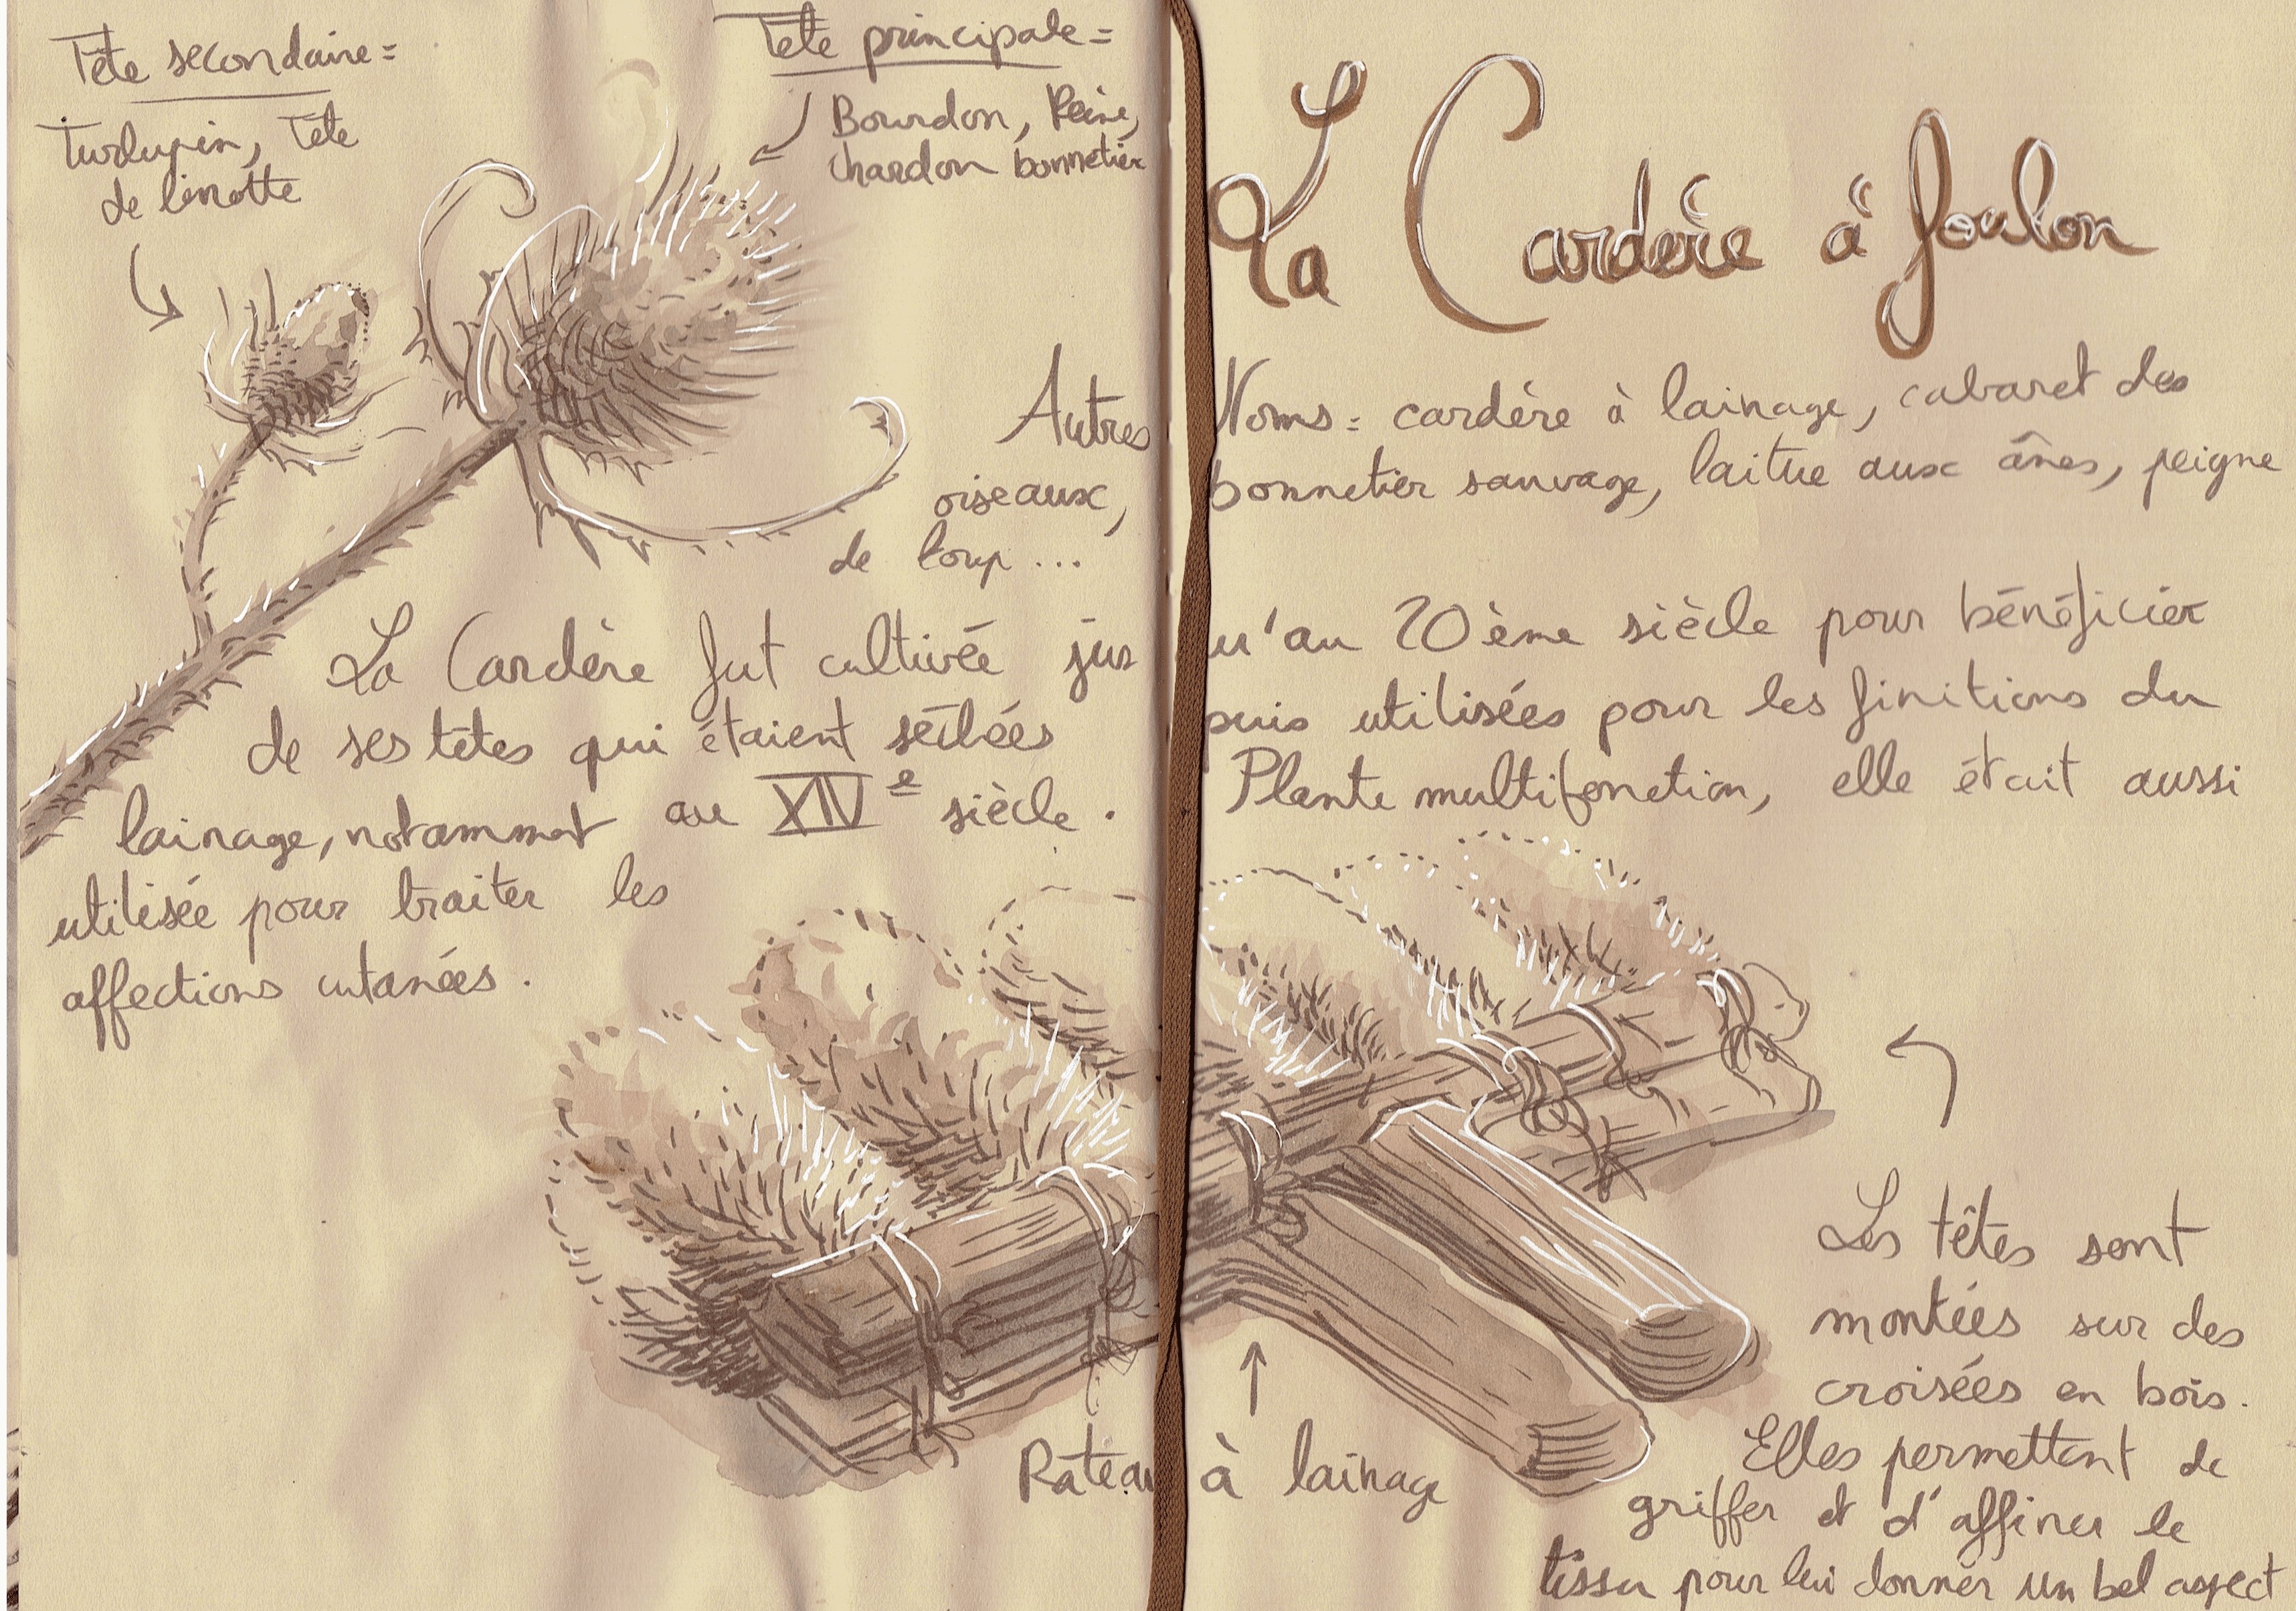 Tête secondaire =
Turlupin, Tête
de linotte
Tête principale =
Bourdon, Reine,
chardon bonnetier
La Cardère à foulon
Autres Noms = cardère à lainage, cabaret des
oiseaux, bonnetier sauvage, laitue aux ânes, peigne
de loup ...
La Cardère fut cultivée jusqu'au 20ème siècle pour bénéficier
de ses têtes qui étaient séchées puis utilisées pour les finitions du
lainage, notamment au XIVe siècle. Plante multifonction, elle était aussi
utilisée pour traiter les
affections cutanées.
Rateau à lainage
Les têtes sont
montées sur des
croisées en bois.
Elles permettent de
griffer et d'affiner le
tissu pour lui donner un bel aspect